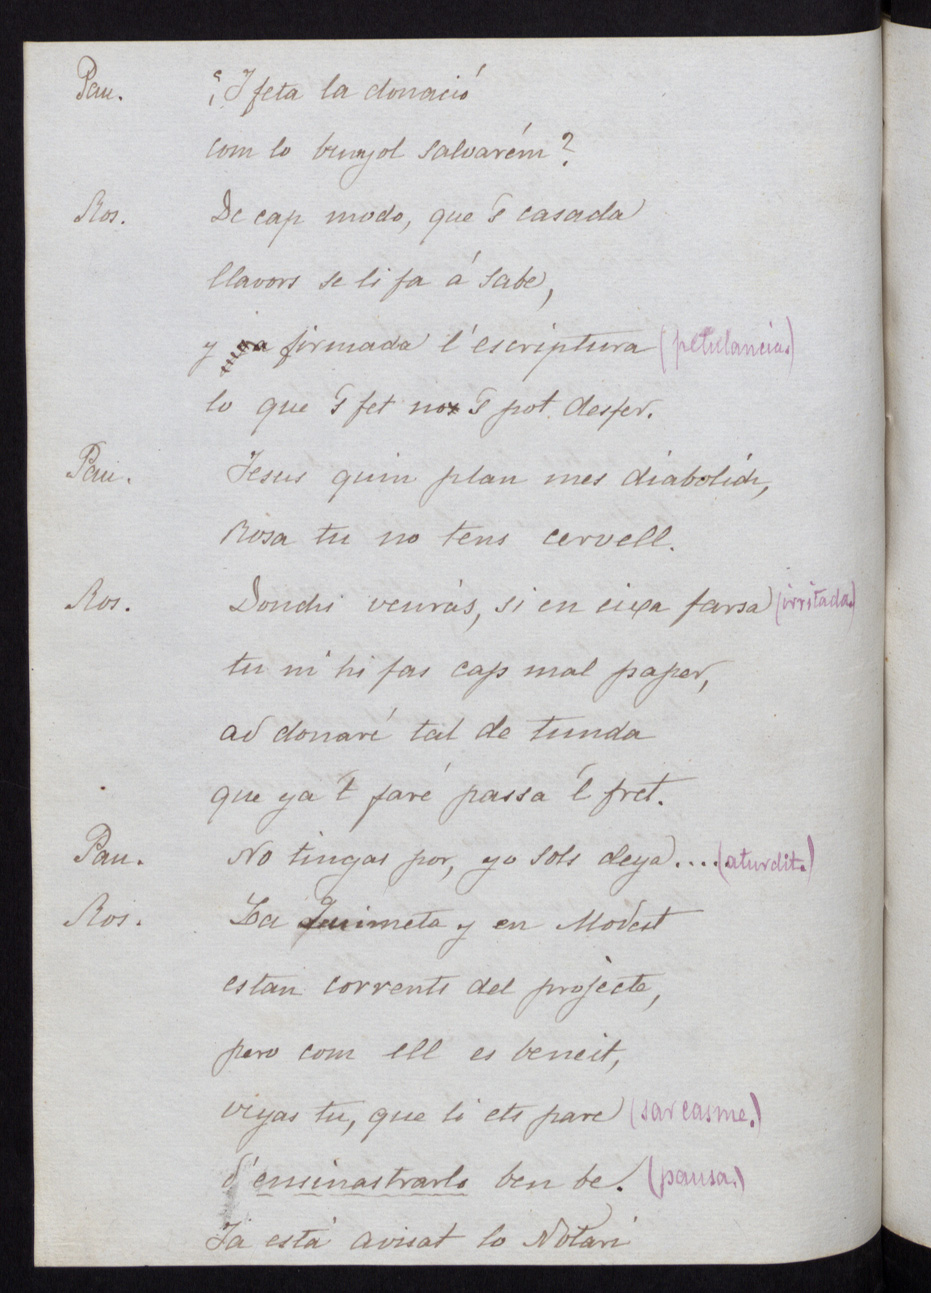 Pau. ¿Y feta la donació
com lo bunyol salvarém?
Ros. De cap modo, que 's casada
llavors se li fa á sabe,
y firmada l' escriptura (petulancia.)
lo que 's fet no 's pot desfer.
Pau. Jesus quin plan mes diabolich,
Rosa tu no tens cervell.
Ros. Donchs veurás, si en eixa farsa (irritada.)
tu m' hi fas cap mal paper,
at donaré tal de tunda
que ya 't faré passa 'l fret.
Pau. No tingas por, yo sols deya..... (aturdit.)
Ros. La Quimeta y en Modest
estan corrents del projecte,
pero com ell es beneit,
vejas tu, que li ets pare (sarcasme.)
d' ensinastrarlo ben be. (pausa.)
Ja está avisat lo Notari